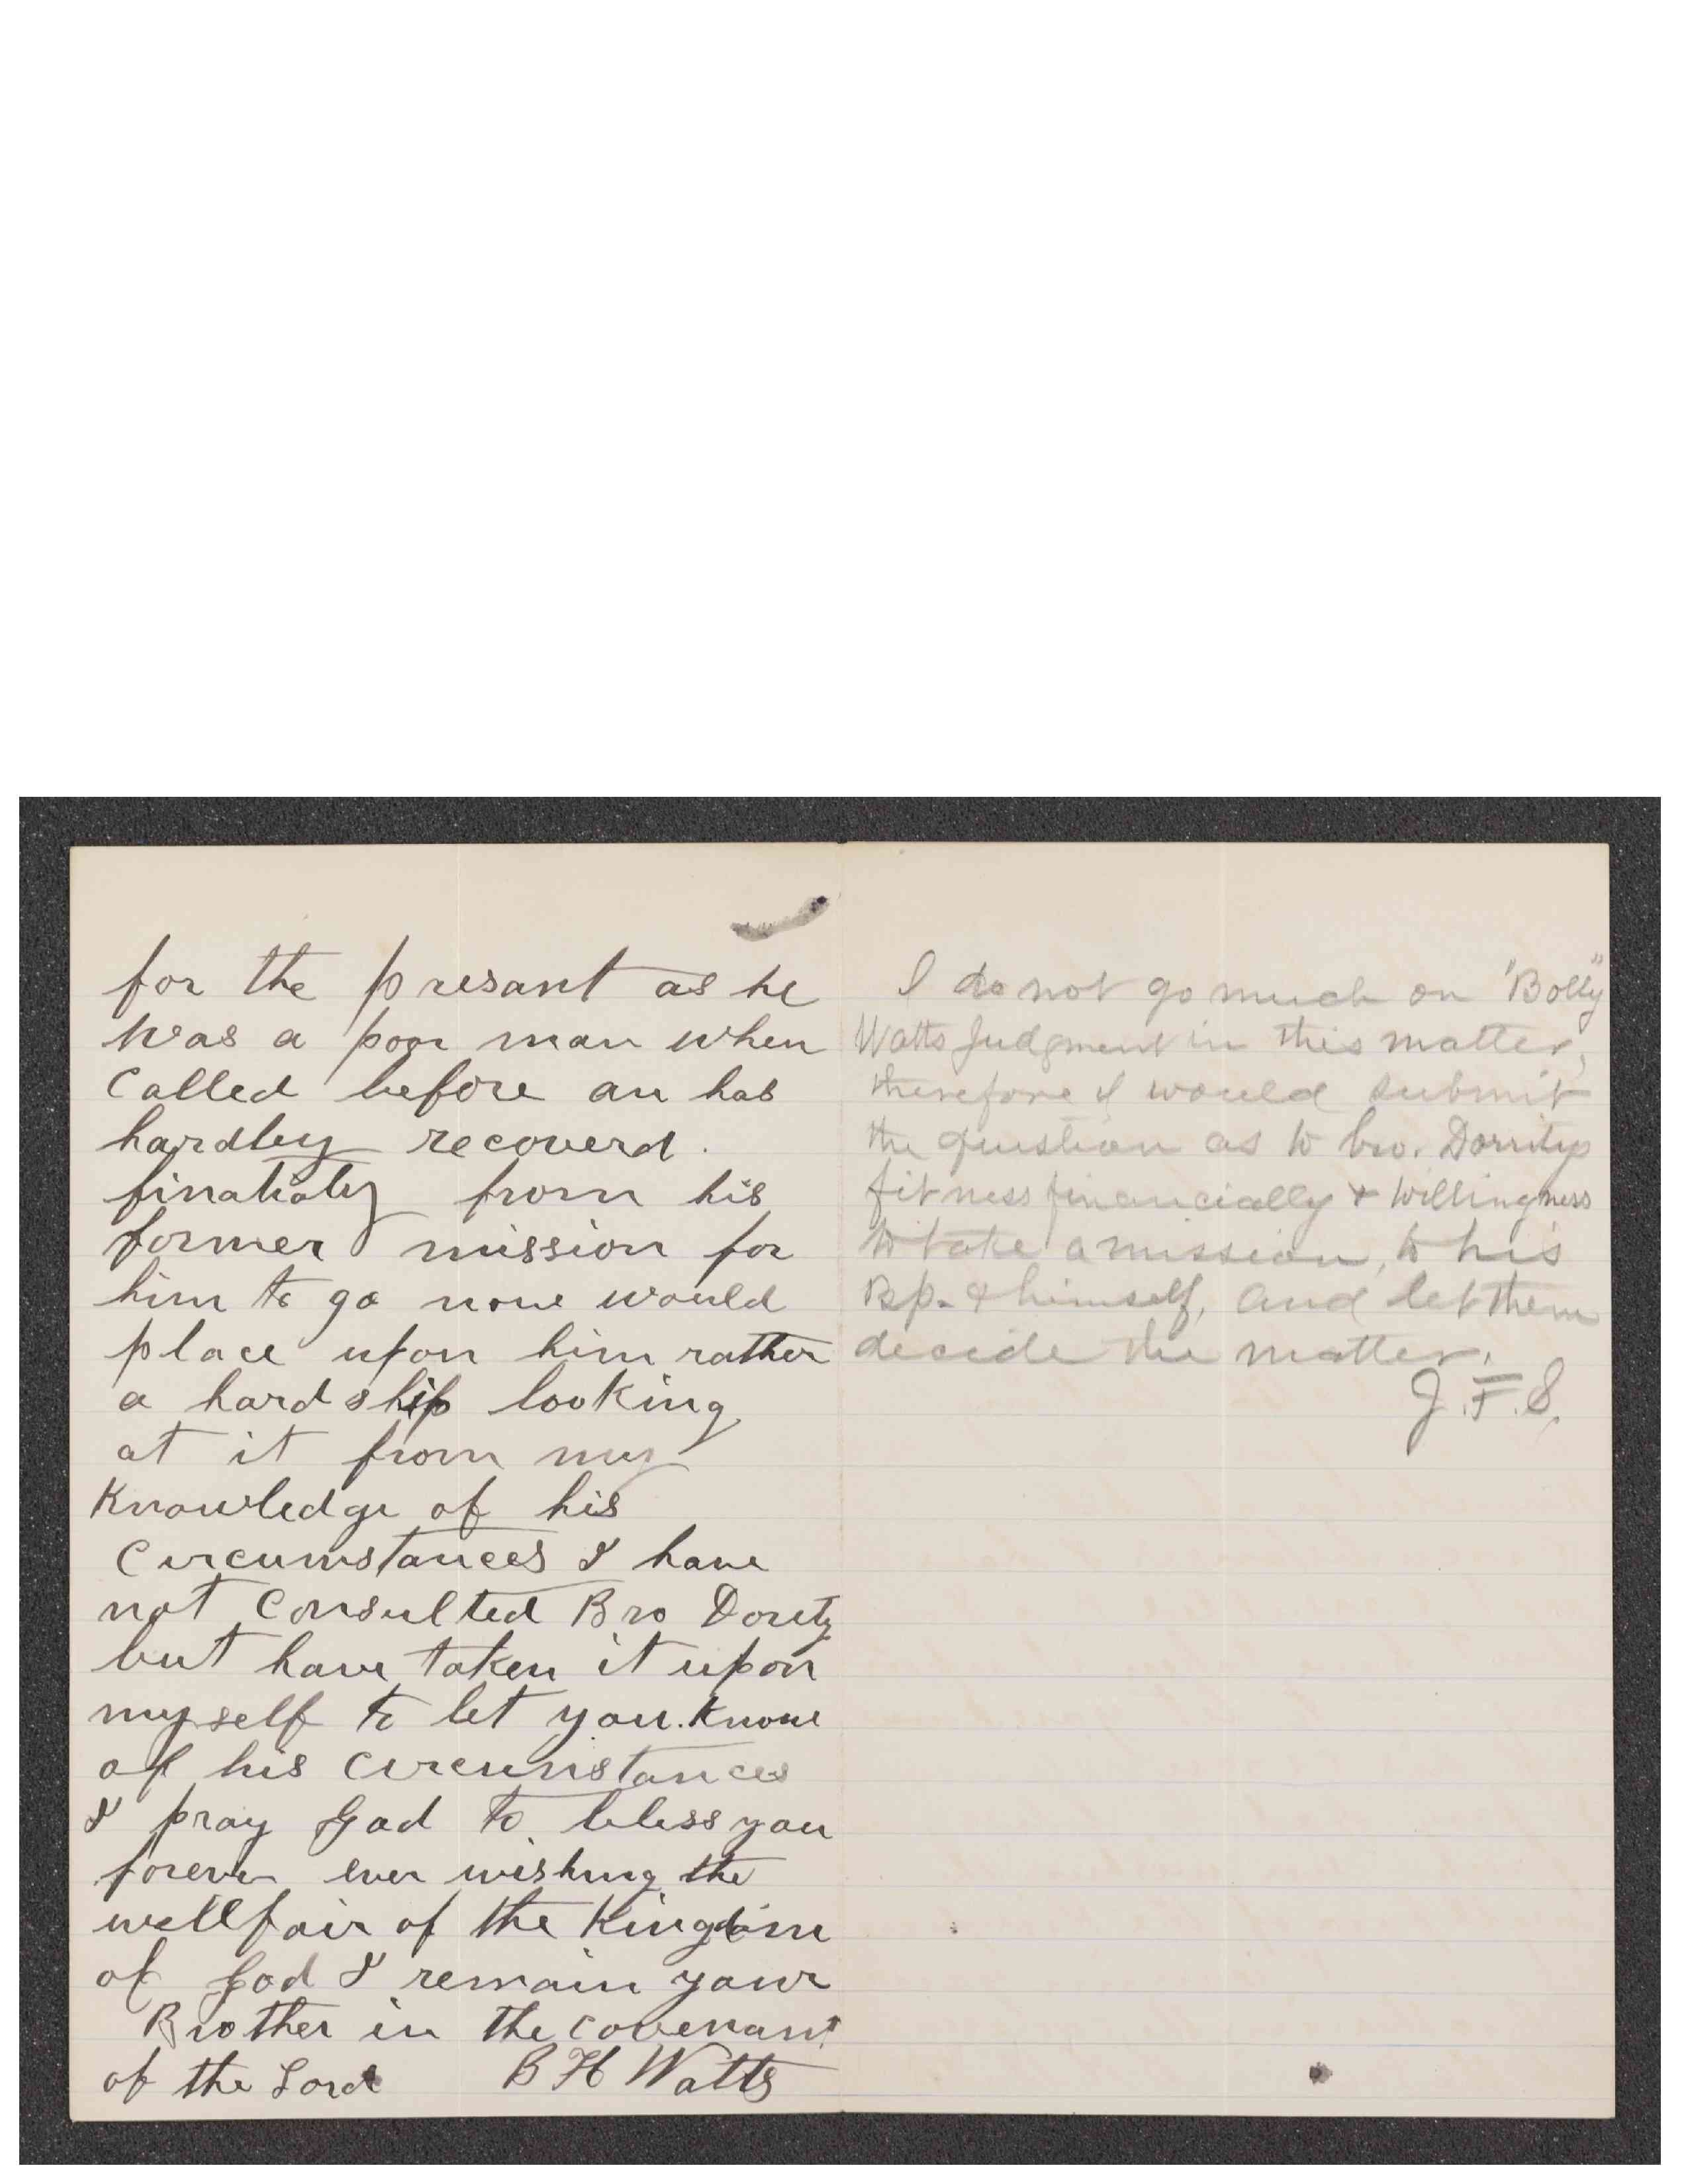 for the presant as he
was a poor man when
called before an has
hardley recoverd.
finatialy from his
former mission for
him to go now would
place upon him rather
a hardship looking
at it from my
Knowledge of his
Circumstances I have
not Consulted Bro Dority
but have taken it upon
myself to let you. Know
of his circumstances
I pray God to bless you
forever ever wishing the
wellfair of the Kingdom
of God I remain your
Brother in the covenant
of the Lord B H Watts
I do not go much on "Bolly"
Watts judgment in this matter,
therefore I would submit
the question as to bro. Dorritys
fitness financially & willingness
to take a mission, to his
Bp. & himself, and let them
decide the matter.
J.F.S.